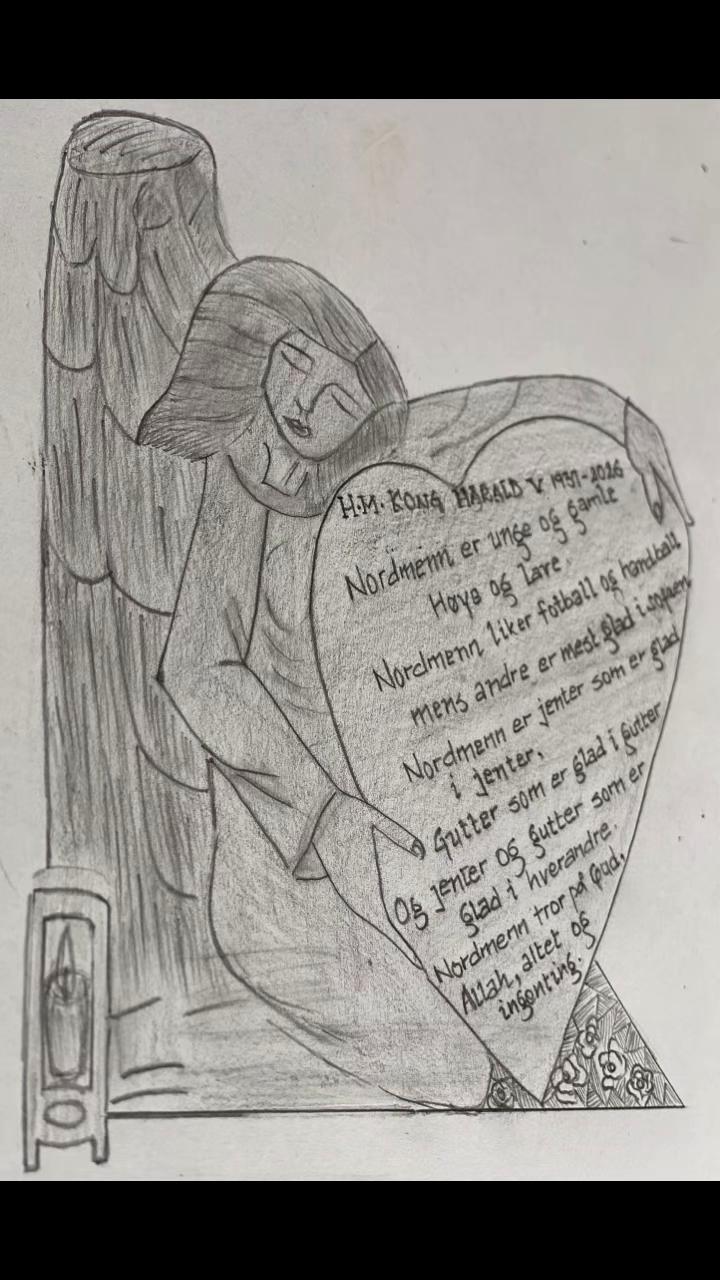 H.M. KONG HARALD V 1937-2026
Nordmenn er unge og gamle
Høye og lave.
Nordmenn liker fotball og håndball
mens andre er mest glad i sofaen
Nordmenn er jenter som er glad
i jenter,
Gutter som er glad i gutter
Og jenter og gutter som er
glad i hverandre.
Nordmenn tror på Gud,
Allah, altet og
ingenting.